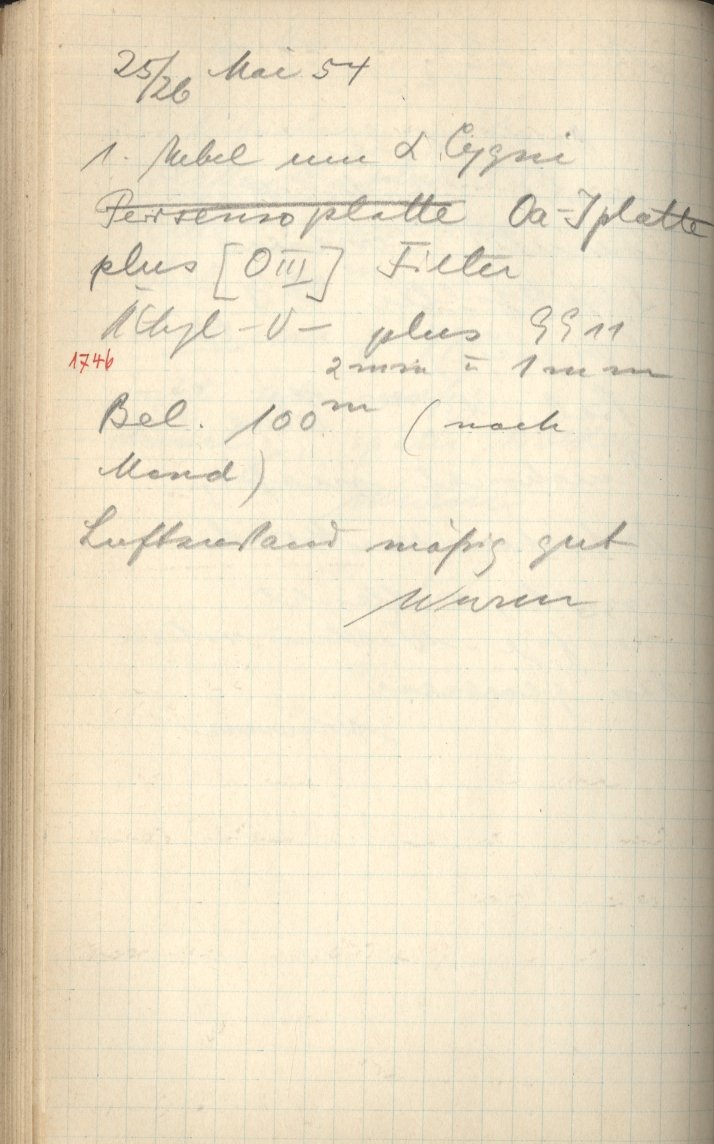 25/26 Mai 54
1. Nebel um α Cygni
Persensoplatte Oa-Iplatte
plus [OIII] Filter
Äthyl-V- plus GG 11
1746
2mm u 1mm
Bel. 100m (nach
Mond)
Luftzustand mäßig gut
Wurm